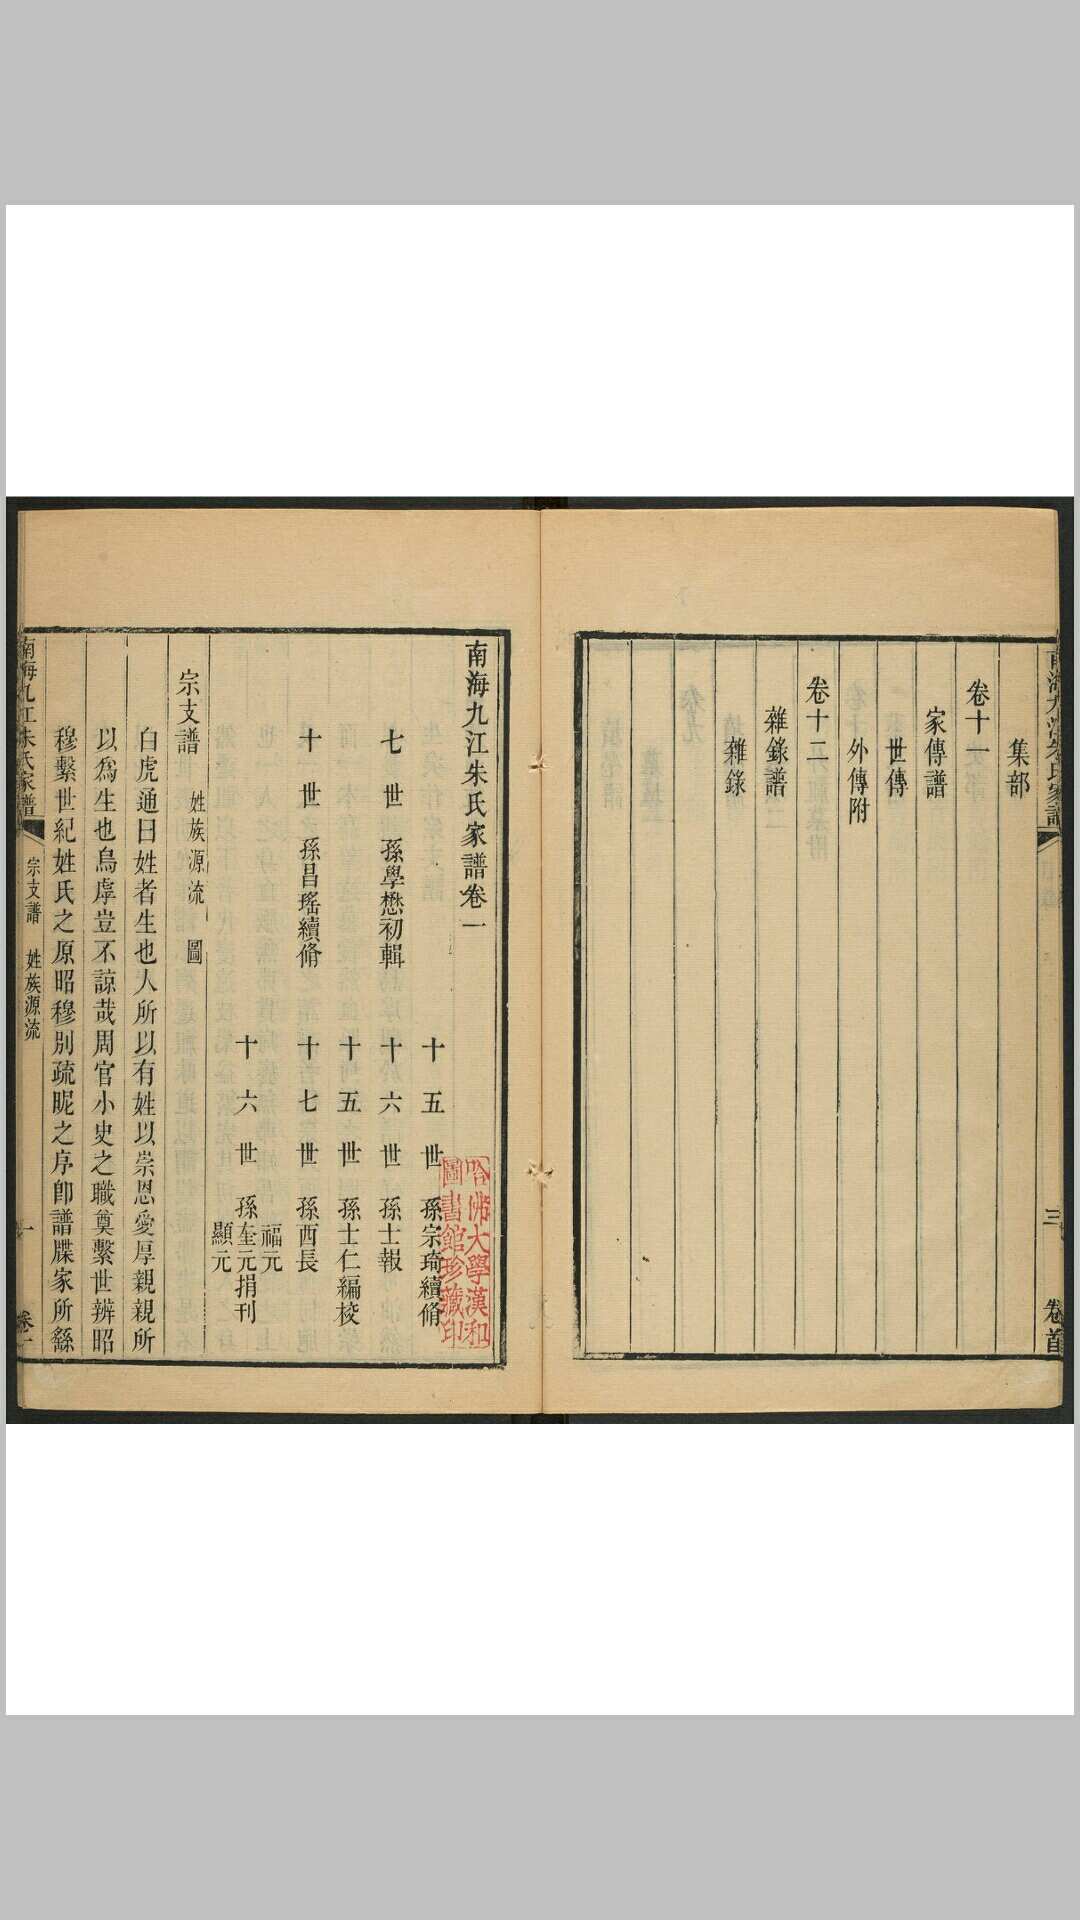 集部
卷十一
家傳譜
世傳
外傳附
卷十二
雜錄譜
雜錄
三
卷首
南海九江朱氏家譜卷一
十五世孫宗琦續脩
七世孫學懋初輯
十六世孫士報
十五世孫士仁編校
十世孫昌瑤續脩
十七世孫西長
福元
十六世孫奎元捐刊
顯元
宗支譜 姓族源流 圖
白虎通曰姓者生也人所以有姓以崇恩愛厚親親所
以爲生也烏虖豈不諒哉周官小史之職奠繫世辨昭
穆繫世紀姓氏之原昭穆別疏昵之序卽譜牒家所繇
南海九江朱氏家譜
宗支譜 姓族源流
一
卷一
哈佛大學漢和
圖書館珍藏印